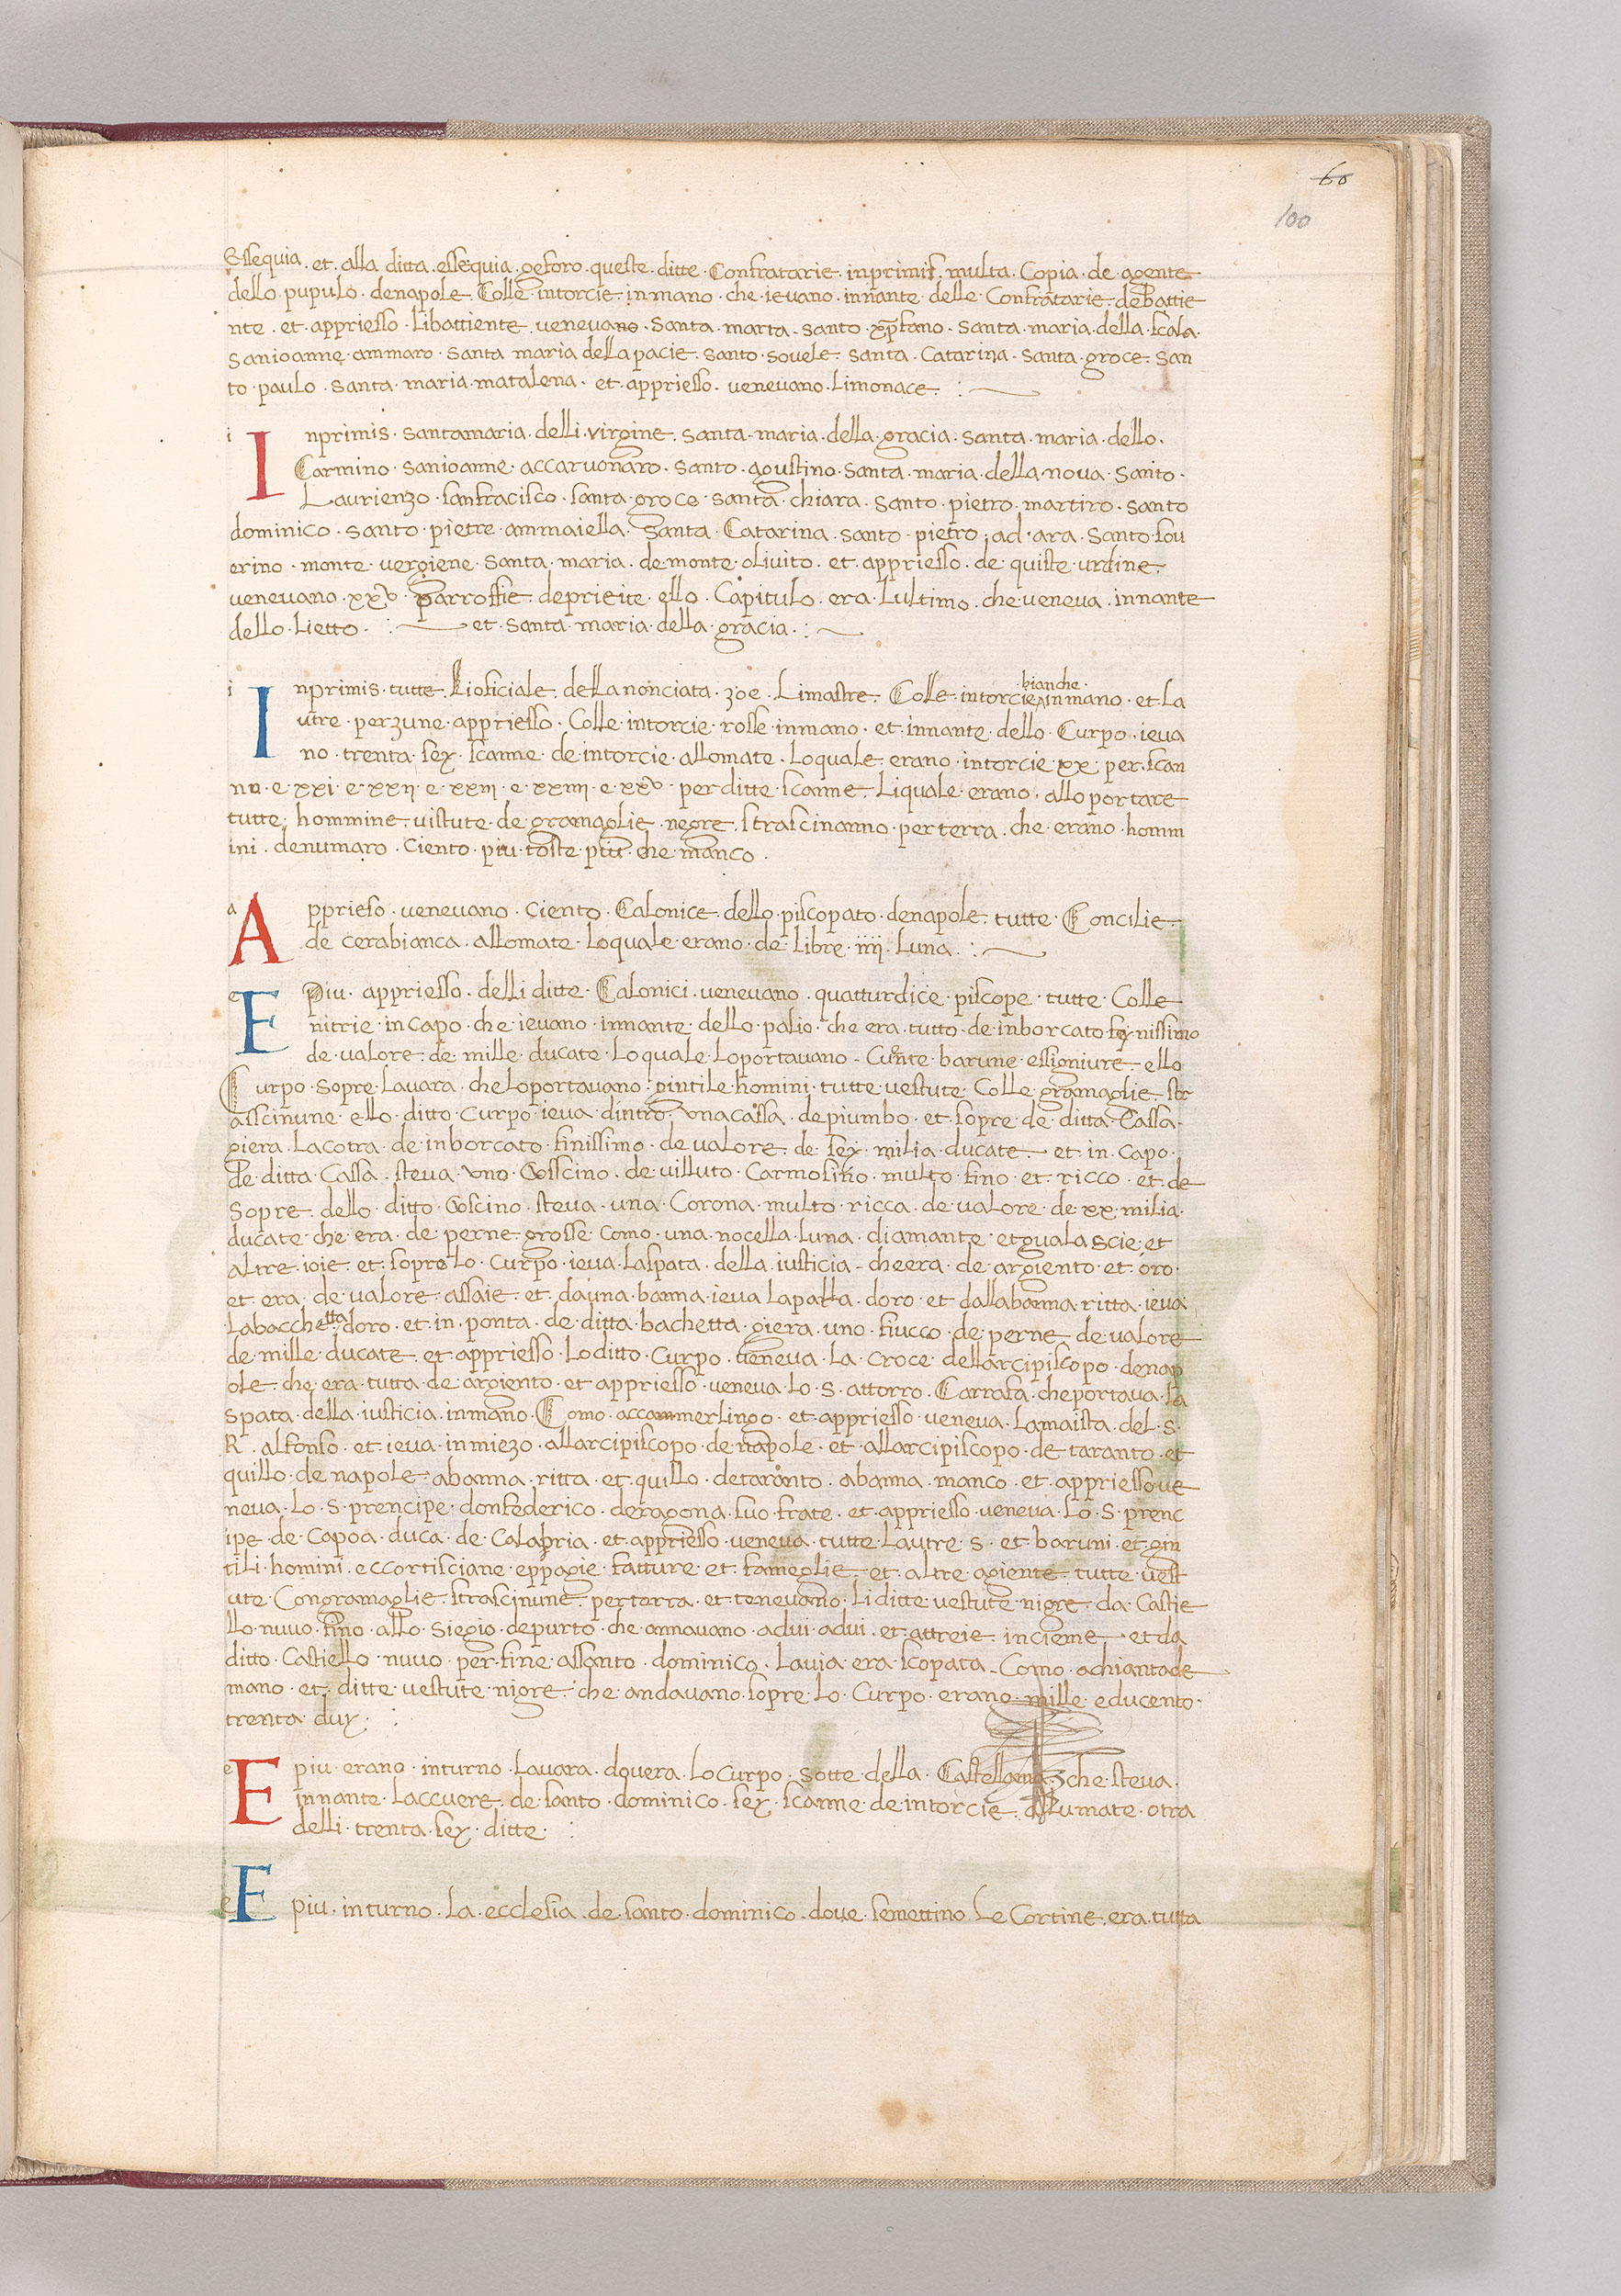 60
100
Essequia . et . alla ditta . essequia . geforo . queste . ditte . Confratarie . inprimis . multa . Copia . de . agente
dello . pupulo . denapole . Colle . intorcie . inmano . che . ievano . innante . delle . Confratarie . de battie
nte . et . appriesso . libattiente . venevano . Santa . marta . Santo . xpofano . Santa . maria . della . scala .
Sanioanne . ammaro . Santa maria dellapacie . Santo . Sovele . Santa . Catarina . Santa . groce . San
to . paulo . Santa . maria . matalena . et . appriesso . venevano . limonace . :
i I nprimis . Santamaria . delli . virgine . Santa . maria . della . gracia . Santa . maria . dello .
Carmino . Sanioanne . accarvonaro . Santo . agustino . Santa . maria . della . nova . Santo .
Laurienzo . sanfracisco . santa . groce . Santa . chiara . Santo . pietro . martiro . Santo
dominico . Santo . pietre . ammaiella . Santa . Catarina . Santo . pietro . ad . ara . Santo . sov
erino . monte . vergiene . Santa . maria . de monte . olivito . et . appriesso . de quiste . urdine .
venevano . xxv . parroffie . deprieite . ello . Capitulo . era . lultimo . che veneva . innante
dello . lietto . : et . Santa maria . della . gracia . :
i I nprimis . tutte . lioficiale . dellanonciata . zoe . limastre . Colle . intorcie bianche . inmano . et . la
utre . perzune . appriesso . Colle . intorcie . rosse . inmano . et . innante . dello . Curpo . ieva
no . trenta . sex . scanne . de intorcie . allomate . loquale . erano . intorcie . xx . per . scan
nu . e . xxi . e . xxii . e . xxiii . e . xxiiii . e . xxv . per ditte . scanne . liquale . erano . allo portare
tutte . hommine . vistute . de gramaglie . negre . strascinanno . per terra . che . erano . homm
ini . denumaro . Ciento . piu . toste . piu . che . manco .
a A ppriesо . venevano . Ciento . Calonice . dello . piscopato . denapole . tutte . Concilie .
de cerabianca . allomate . loquale . erano . de . libre . iiii . luna . :
e E Piu . appriesso . delli ditte . Calonici . venevano . quatturdice . piscope . tutte . Colle
nitrie . in capo . che ievano . innante . dello . palio . che era . tutto . de inborcato fynissimo
de . valore . de . mille . ducate . lo quale . loportavano . Cunte . barune . essigniure . ello
Curpo . Sopre . lavara . che loportavano . gintile . homini . tutte . vestute . Colle . gramaglie . str
asscinune . ello . ditto . Curpo . ieva . dintro . Vnacassa . depiumbo . et . sopre . de . ditta . Cassa .
giera . lacotra . de inborcato . finissimo . de valore . de . sex . milia . ducate . et . in . capo .
de . ditta . Cassa . steva . Vno . Cosscino . de villuto . Carmosino . multo . fino . et . ricco . et . de
Sopre . dello . ditto . Coscino . steva . una . Corona . multo . ricca . de valore . de xx . milia .
ducate . che . era . de . perne . grosse . Como . una . nocella . luna . diamante . et gualascie . et
altre . ioie . et . sopre lo . Curpo . ieva . laspata . della . iusticia . che era . de . argiento . et . oro .
et . era . de . valore . assaie . et . dauna . banna . ieva . lapalla . doro . et . dallabanna . ritta . ieva
labacchetta . doro . et . in . ponta . de . ditta . bachetta . giera . uno . fiucco . de perne . de valore
de mille . ducate . et . appriesso . lo ditto . Curpo . veneva . la . croce . dellarcipiscopo . denap
ole . che . era . tutta . de argiento . et . appriesso . veneva . lo . S . attorro . Carrafa . che portava . la
spata . della . iusticia . inmano . Como . accammerlingo . et . appriesso . veneva . lamaista . del . S .
R . alfonso . et . ieva . in miezo . allarcipiscopo . de napole . et . allarcipiscopo . de taranto . et
quillo . de napole . abanna . ritta . et . quillo . detaranto . abanna . manco . et . appriesso ve
neva . lo . S . prencipe . donfederico . deragona . suo . frate . et . appriesso . veneva . lo . S . prenc
ipe . de . Capoa . duca . de . Calabria . et . appriesso . veneva . tutte . lautre . S . et . baruni . et . gin
tili . homini . eccortisciane . eppagie . fatture . et . fameglie . et . altre . agiente . tutte . vest
ute . Congramaglie . strascinune . perterra . et . tenevano . li ditte . vestute . nigre . da . Castie
llo . nuvo . fino . allo . Siegio . depurto . che annavano . adui . adui . et . attreie . insieme . et da
ditto . Castiello . nuvo . per . fine . assanto . dominico . lavia . era . scopata . Como . achiantade
mano . et . ditte . vestute . nigre . che . andavano . sopre . lo . Curpo . erano . mille . educento .
trenta . dui . :
e E piu . erano . inturno . lavara . dovera . lo curpo . Sotte . della . Castellana . che . steva .
innante . laccuere . de . santo . dominico . sex . scanne . de intorcie . allumate . otra
delli . trenta . sex . ditte . :
e E piu . inturno . la . ecclesia . de . santo . dominico . dove . semettino . le Cortine . era . tutta